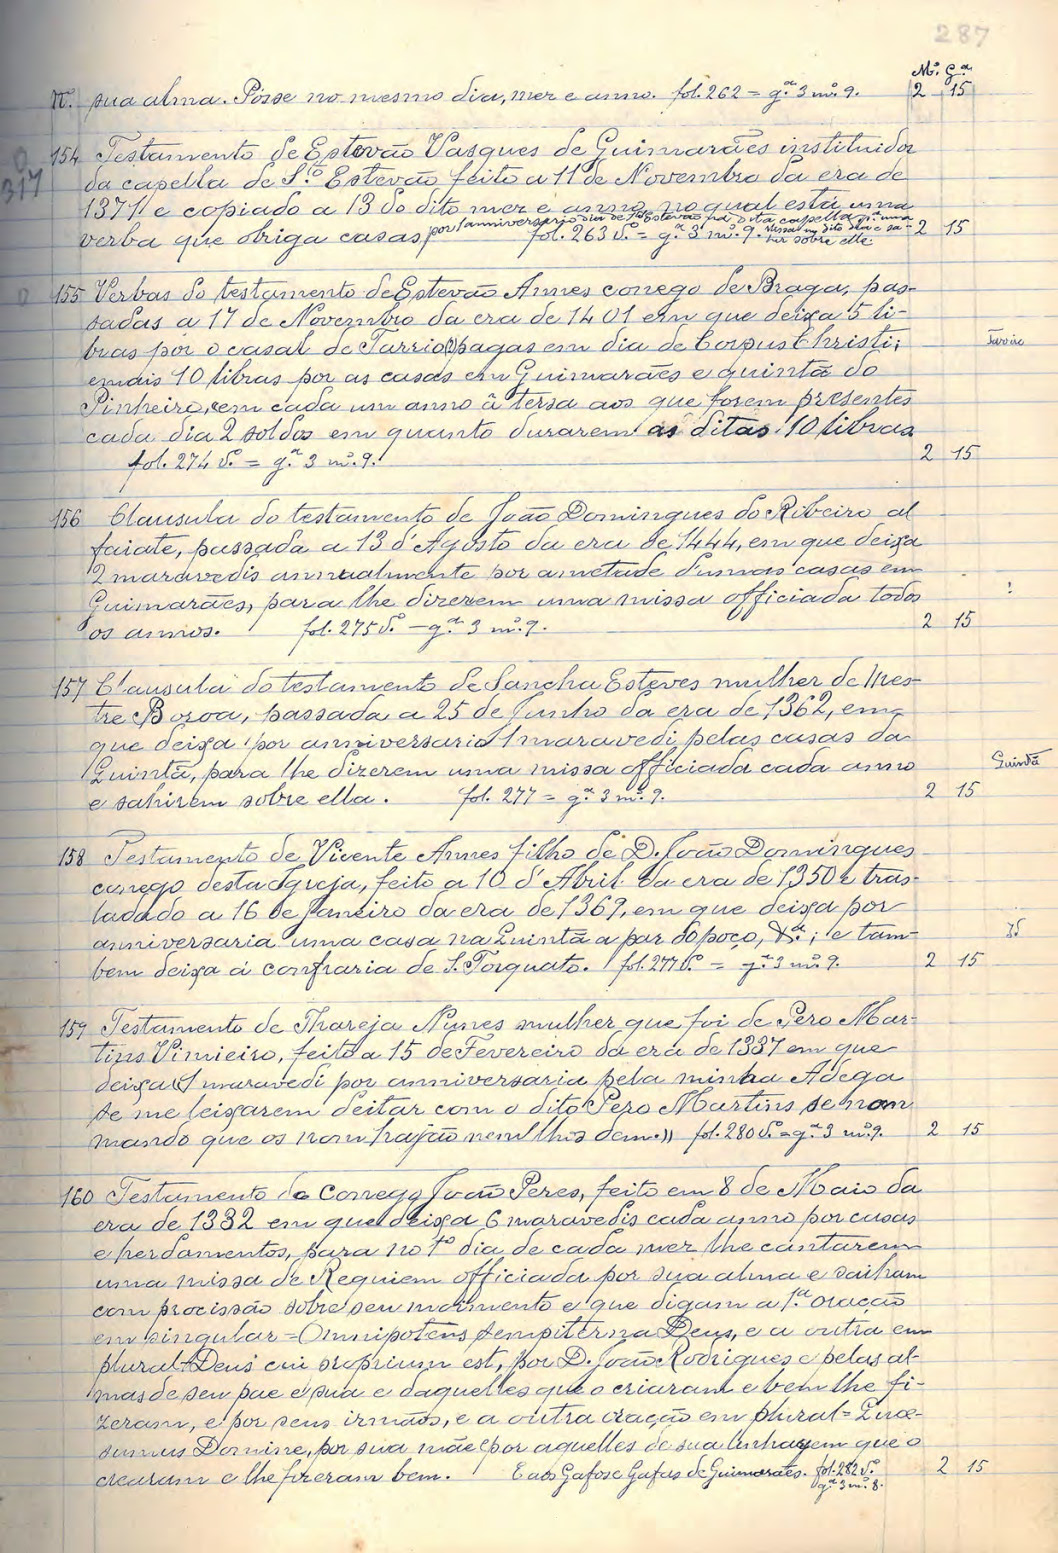 287
Mº. Gª.
N. sua alma. Posse no mesmo dia, mez e anno. fol. 262 = gª. 3 mº. 9. 2 15
0
317
154 Testamento de Estevão Vasques de Guimarães instituidor
da capella de S.to Estevão feito a 11 de Novembro da era de
1371 e copiado a 13 do dito mez e anno, no qual está uma
verba que obriga casas por 1 anniversario dia de S.to Estevão na dita capella pª. uma
fol. 263 v.º = gª. 3 mº. 9. missa no dito dia e sa- 2 15
hir sobre elle.
155 Verbas do testamento de Estevão Annes conego de Braga, pas-
sadas a 17 de Novembro da era de 1401 em que deixa 5 li-
bras por o casal de pagas em dia de Corpus Christi;
e mais 10 libras por as casas em Guimarães e quintã do
Pinheiro, em cada um anno á tersa aos que forem presentes
cada dia 2 soldos em quanto durarem as ditas 10 libras
fol. 274 v.º = gª. 3 mº. 9. 2 15
156 Clausula do testamento de João Domingues do Ribeiro al
faiate, passada a 13 d'Agosto da era de 1444, em que deixa
2 maravedis annualmente por ametade d'umas casas em
?
Guimarães, para lhe dizerem uma missa officiada todos
os annos. fol. 275 v.º = gª. 3 mº. 9. 2 15
157 Clausula do testamento de Sancha Esteves mulher de Mes-
tre Boroa, passada a 25 de Junho da era de 1362, em
que deixa por anniversario 1 maravedi pelas casas da
Quintã, para lhe dizerem uma missa officiada cada anno
Quintã
e sahirem sobre ella. fol. 277 = gª. 3 mº. 9. 2 15
158 Testamento de Vicente Annes filho de D. João Domingues
conego desta Igreja, feito a 10 d'Abril da era de 1350 e tras-
ladado a 16 de Janeiro da era de 1369, em que deixa por
anniversaria uma casa na Quintã a par do poço, &ª.; e tam-
bem deixa á confraria de S. Torquato. fol. 277 v.º = gª. 3 mº. 9. 2 15
159 Testamento de Thareja Nunes mulher que foi de Pero Mar-
tins Vimieiro, feito a 15 de Fevereiro da era de 1337 em que
deixa 1 maravedi por anniversaria pela minha Adega
se me leixarem deitar com o dito Pero Martins se nom
mando que os nom hajão nem lhos dem.» fol. 280 v.º = gª. 3 mº. 9. 2 15
160 Testamento do Conego João Peres, feito em 8 de Maio da
era de 1332 em que deixa 6 maravedis cada anno por casas
e herdamentos, para no 1º dia de cada mez lhe cantarem
uma missa de Requiem officiada por sua alma e saiham
com procissão sobre seu moimento e que digam a 1.ª oração
em singular = Omnipotens sempiterna Deus, e a outra em
plural = Deus cui proprium est, por D. João Rodrigues e pelas al-
mas de seu pae e sua e daquelles que o criaram e bem lhe fi-
zeram, e por seus irmãos, e a outra oração em plural = Quæ-
sumus Domine, por sua mãe e por aquelles de sua linhagem que o
crearam e lhe fizeram bem. E aos Gafos e Gafas de Guimarães. fol. 282 v.º 2 15
gª. 3 mº. 8.